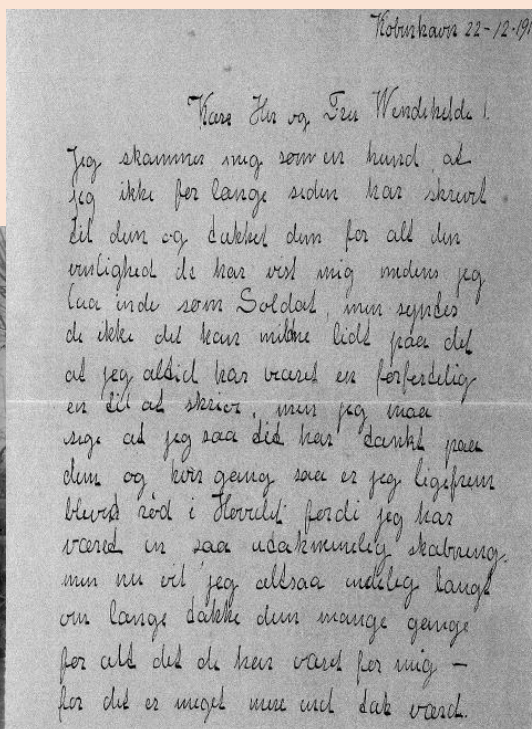 København 22-12-191
Kære Her og Fru Wendehelde!
Jeg skammer mig som en hund at
jeg ikke for lange siden har skrevet
til dem og takket dem for alt den
venlighed de har vist mig medens jeg
laa inde som Soldat, men syntes
de ikke det kan milne lidt paa det
at jeg altid har været en forferdelig
en til at skrive, men jeg maa
sige at jeg saa tid har tænkt paa
dem og hver gang saa er jeg ligefrem
bleved röd i Hovedet fordi jeg har
væred en saa utaknemelig skabning.
men nu vil jeg altsaa endelig langt
om lange takke dem mange gange
for alt det de har værd for mig —
for det er meget mere end tak værd.